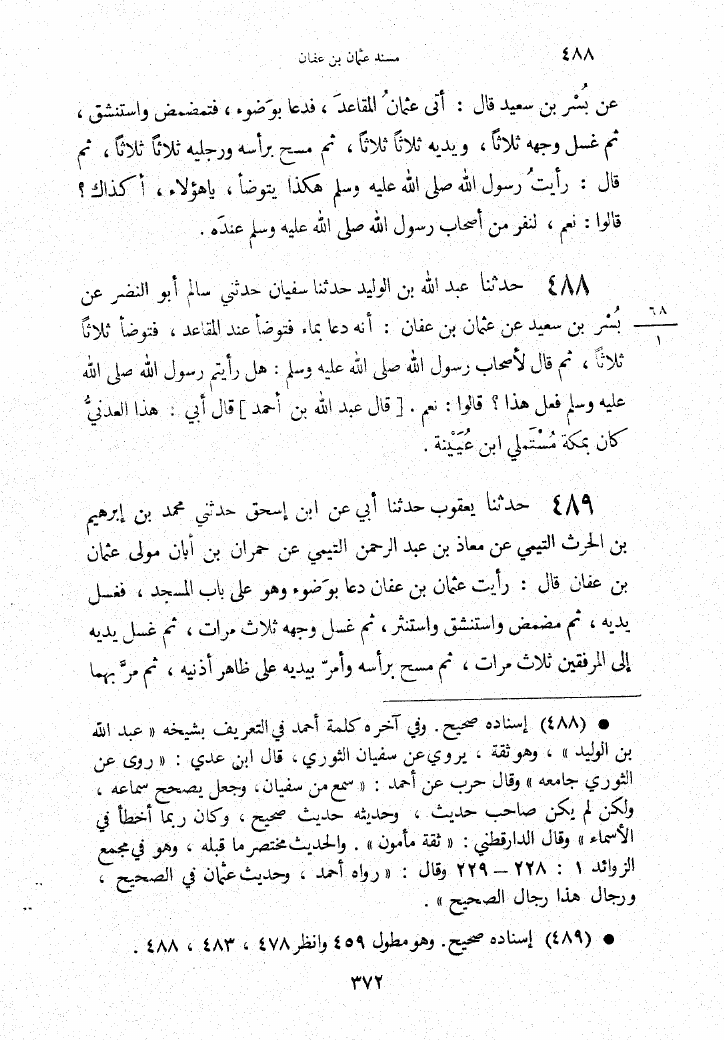 ٤٨٨
مسند عثمان بن عفان
عن بُسْر بن سعيد قال : أتى عثمانُ المقاعدَ ، فدعا بوَضوء ، فتمضمض واستنشق ،
ثم غسل وجهه ثلاثاً ، ويديه ثلاثاً ثلاثاً ، ثم مسح برأسه ورجليه ثلاثاً ثلاثاً ، ثم
قال : رأيتُ رسول الله صلى الله عليه وسلم هكذا يتوضأ ، ياهؤلاء ، أكذاك ؟
قالوا : نعم ، لنفر من أصحاب رسول الله صلى الله عليه وسلم عندَه .
٤٨٨ حدثنا عبد الله بن الوليد حدثنا سفيان حدثني سالم أبو النضر عن
٦٨
١
بُسْر بن سعيد عن عثمان بن عفان : أنه دعا بماء فتوضأ عند المقاعد ، فتوضأ ثلاثاً
ثلاثاً ، ثم قال لأصحاب رسول الله صلى الله عليه وسلم : هل رأيتم رسول الله صلى الله
عليه وسلم فعل هذا ؟ قالوا : نعم . [ قال عبد الله بن أحمد ] قال أبي : هذا العدنيُّ
كان بمكة مُسْتَملي ابن عُيَيْنة .
٤٨٩ حدثنا يعقوب حدثنا أبي عن ابن إسحق حدثني محمد بن إبرهيم
بن الحرث التيمي عن معاذ بن عبد الرحمن التيمي عن حمران بن أبان مولى عثمان
بن عفان قال : رأيت عثمان بن عفان دعا بوَضوء وهو على باب المسجد ، فغسل
يديه ، ثم مضمض واستنشق واستنثر ، ثم غسل وجهه ثلاث مرات ، ثم غسل يديه
إلى المرفقين ثلاث مرات ، ثم مسح برأسه وأمرّ بيديه على ظاهر أذنيه ، ثم مرَّ بهما
● (٤٨٨) إسناده صحيح . وفي آخره كلمة أحمد في التعريف بشيخه « عبد الله
بن الوليد » ، وهو ثقة ، يروي عن سفيان الثوري ، قال ابن عدي : « روى عن
الثوري جامعه » وقال حرب عن أحمد : « سمع من سفيان ، وجعل يصحح سماعه ،
ولكن لم يكن صاحب حديث ، وحديثه حديث صحيح ، وكان ربما أخطأ في
الأسماء » وقال الدارقطني : « ثقة مأمون » . والحديث مختصر ما قبله ، وهو في مجمع
الزوائد ١ : ٢٢٨ – ٢٢٩ وقال : « رواه أحمد ، وحديث عثمان في الصحيح ،
ورجال هذا رجال الصحيح » .
● (٤٨٩) إسناده صحيح . وهو مطول ٤٥٩ وانظر ٤٧٨ ، ٤٨٣ ، ٤٨٨ .
٣٧٢